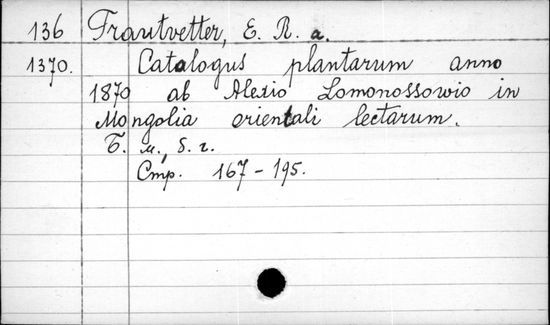 136 Trautvetter, E. R. a.
1370. Catalogus plantarum anno
1870 ab Alexio Lomonossowio in
Mongolia orientali lectarum.
Б. м., б. г.
Стр. 167-195.